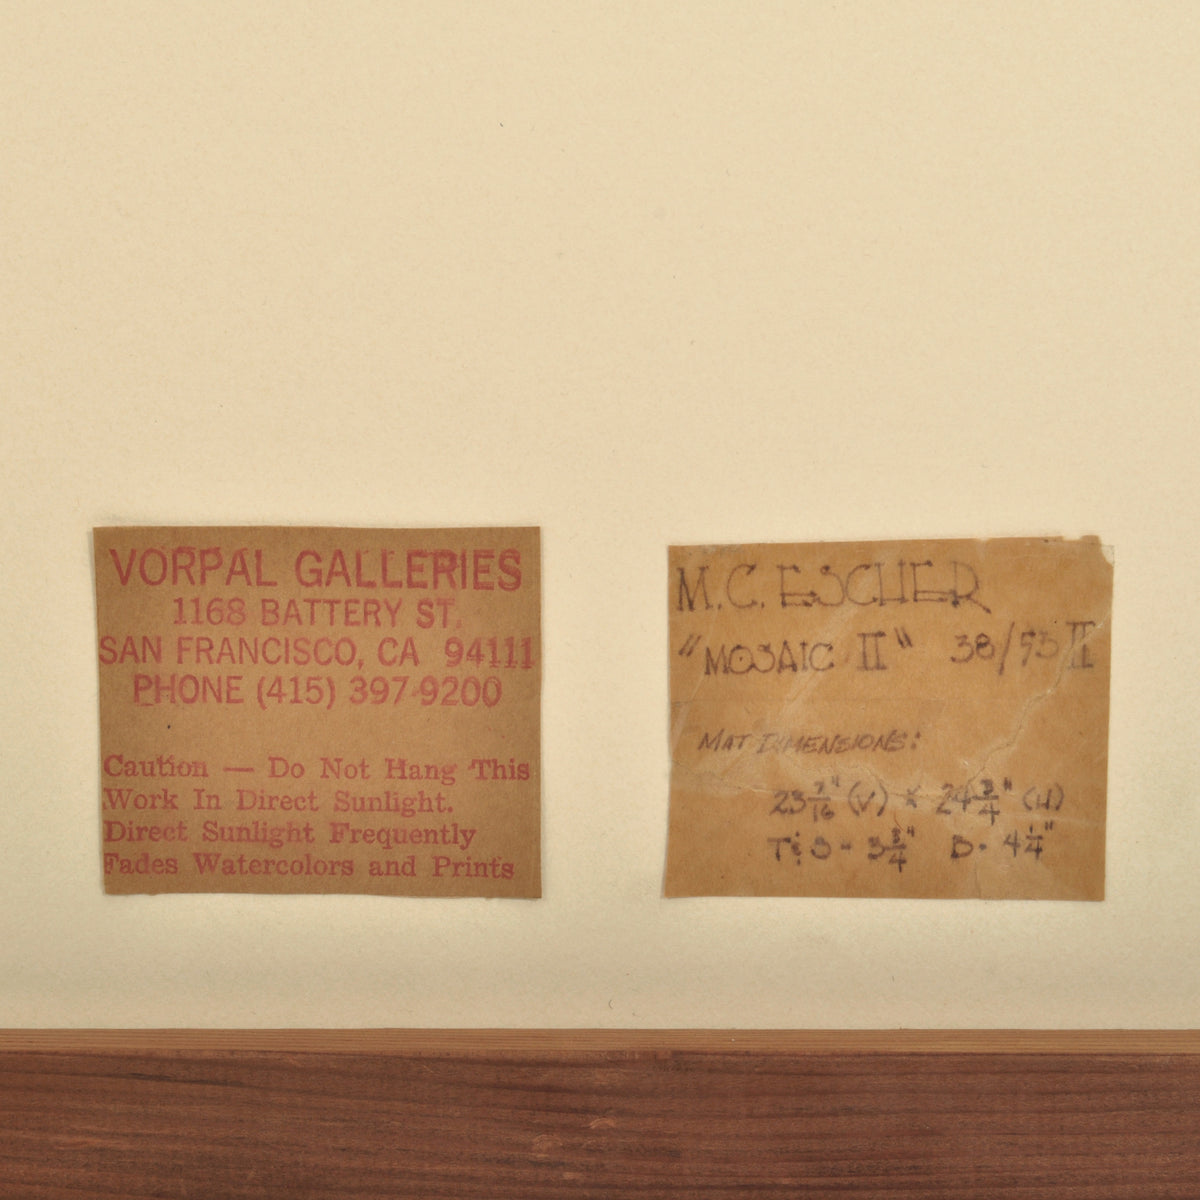 VORPAL GALLERIES
1168 BATTERY ST.
SAN FRANCISCO, CA 94111
PHONE (415) 397-9200
Caution — Do Not Hang This
Work In Direct Sunlight.
Direct Sunlight Frequently
Fades Watercolors and Prints
M.C. ESCHER
"MOSAIC II" 38/53 II
MAT DIMENSIONS:
23 7/16" (V) x 24 3/4" (H)
T&S - 3 3/4" B - 4 1/4"